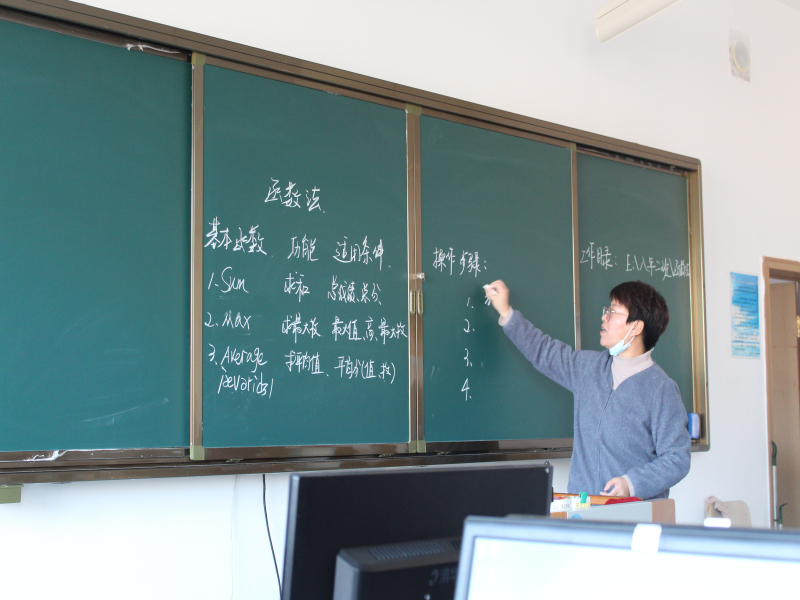 函数法
基本函数 功能 适用条件
1. Sum 求和 总成绩、总分
2. Max 求最大数 最大值、高、最大数
3. Average 求平均值、平均分(值、数)
操作步骤:
1.
2.
3.
4.
工作目录: E:\八年二班\函数法